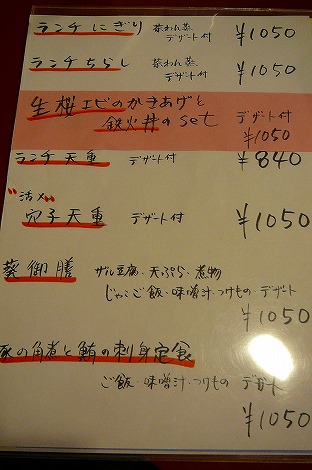 ランチにぎり 茶わん蒸、デザート付 ¥1050
ランチちらし 茶わん蒸、デザート付 ¥1050
生桜エビのかきあげと
鉄火丼のset デザート付
¥1050
ランチ天重 デザート付 ¥840
"活〆"
穴子天重 デザート付 ¥1050
葵御膳 ザル豆腐・天ぷら・煮物
じゃこご飯・味噌汁・つけもの・デザート
¥1050
の角煮と鮪の刺身定食
ご飯・味噌汁・つけもの デザート
¥1050